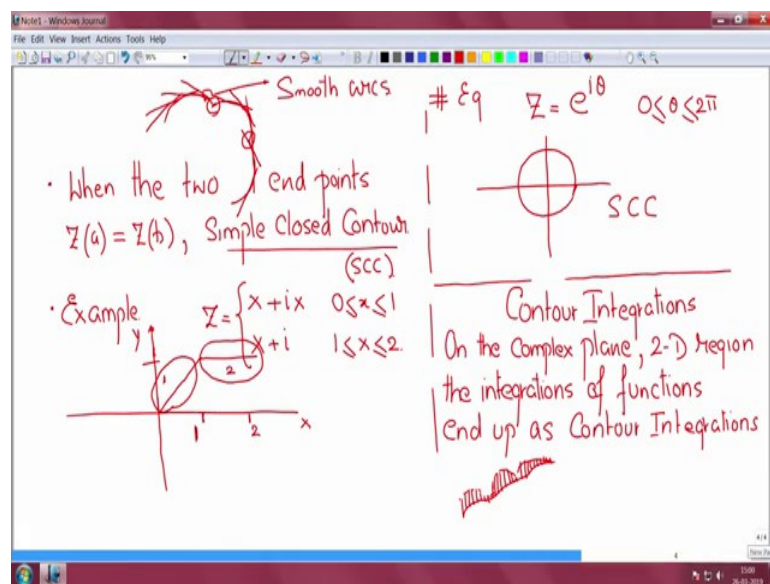 Note1 - Windows Journal
File Edit View Insert Actions Tools Help
Smooth arcs
· When the two end points
Z(a) = Z(b), Simple Closed Contour
(SCC)
· Example
Z = { x + ix 0 ≤ x ≤ 1
x + i 1 ≤ x ≤ 2
y
1
2
1 2 x
# Eg Z = e^{iθ} 0 ≤ θ ≤ 2π
SCC
Contour Integrations
On the Complex plane, 2-D region
the integrations of functions
end up as Contour Integrations
4/4
4
15:00